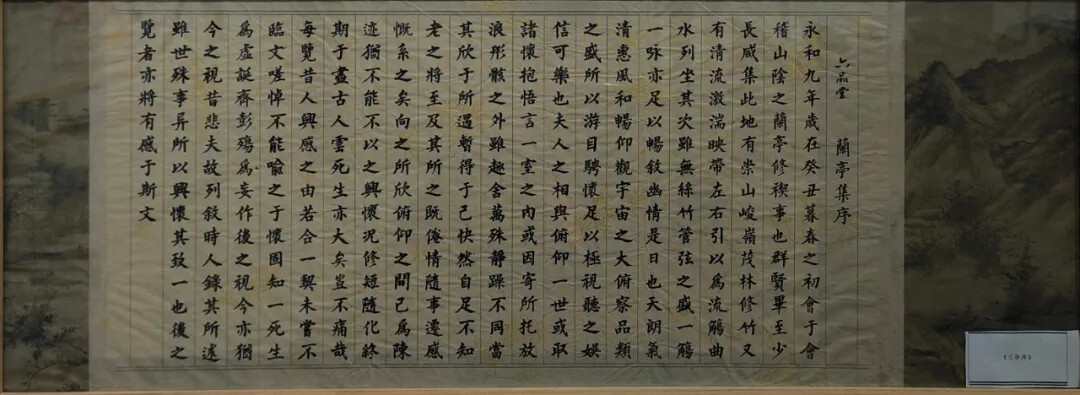 六品堂 蘭亭集序
永和九年歲在癸丑暮春之初會于會
稽山陰之蘭亭修禊事也群賢畢至少
長咸集此地有崇山峻嶺茂林修竹又
有清流激湍映帶左右引以為流觴曲
水列坐其次雖無絲竹管弦之盛一觴
一咏亦足以暢敘幽情是日也天朗氣
清惠風和暢仰觀宇宙之大俯察品類
之盛所以游目騁懷足以極視聽之娛
信可樂也夫人之相與俯仰一世或取
諸懷抱悟言一室之內或因寄所托放
浪形骸之外雖趣舍萬殊靜躁不同當
其欣于所遇暫得于己快然自足不知
老之將至及其所之既倦情隨事遷感
慨系之矣向之所欣俯仰之間已為陳
迹猶不能不以之興懷況修短隨化終
期于盡古人雲死生亦大矣豈不痛哉
每覽昔人興感之由若合一契未嘗不
臨文嗟悼不能喻之于懷固知一死生
為虛誕齊彭殤為妄作後之視今亦猶
今之視昔悲夫故列敘時人錄其所述
雖世殊事異所以興懷其致一也後之
覽者亦將有感于斯文
《兰亭序》